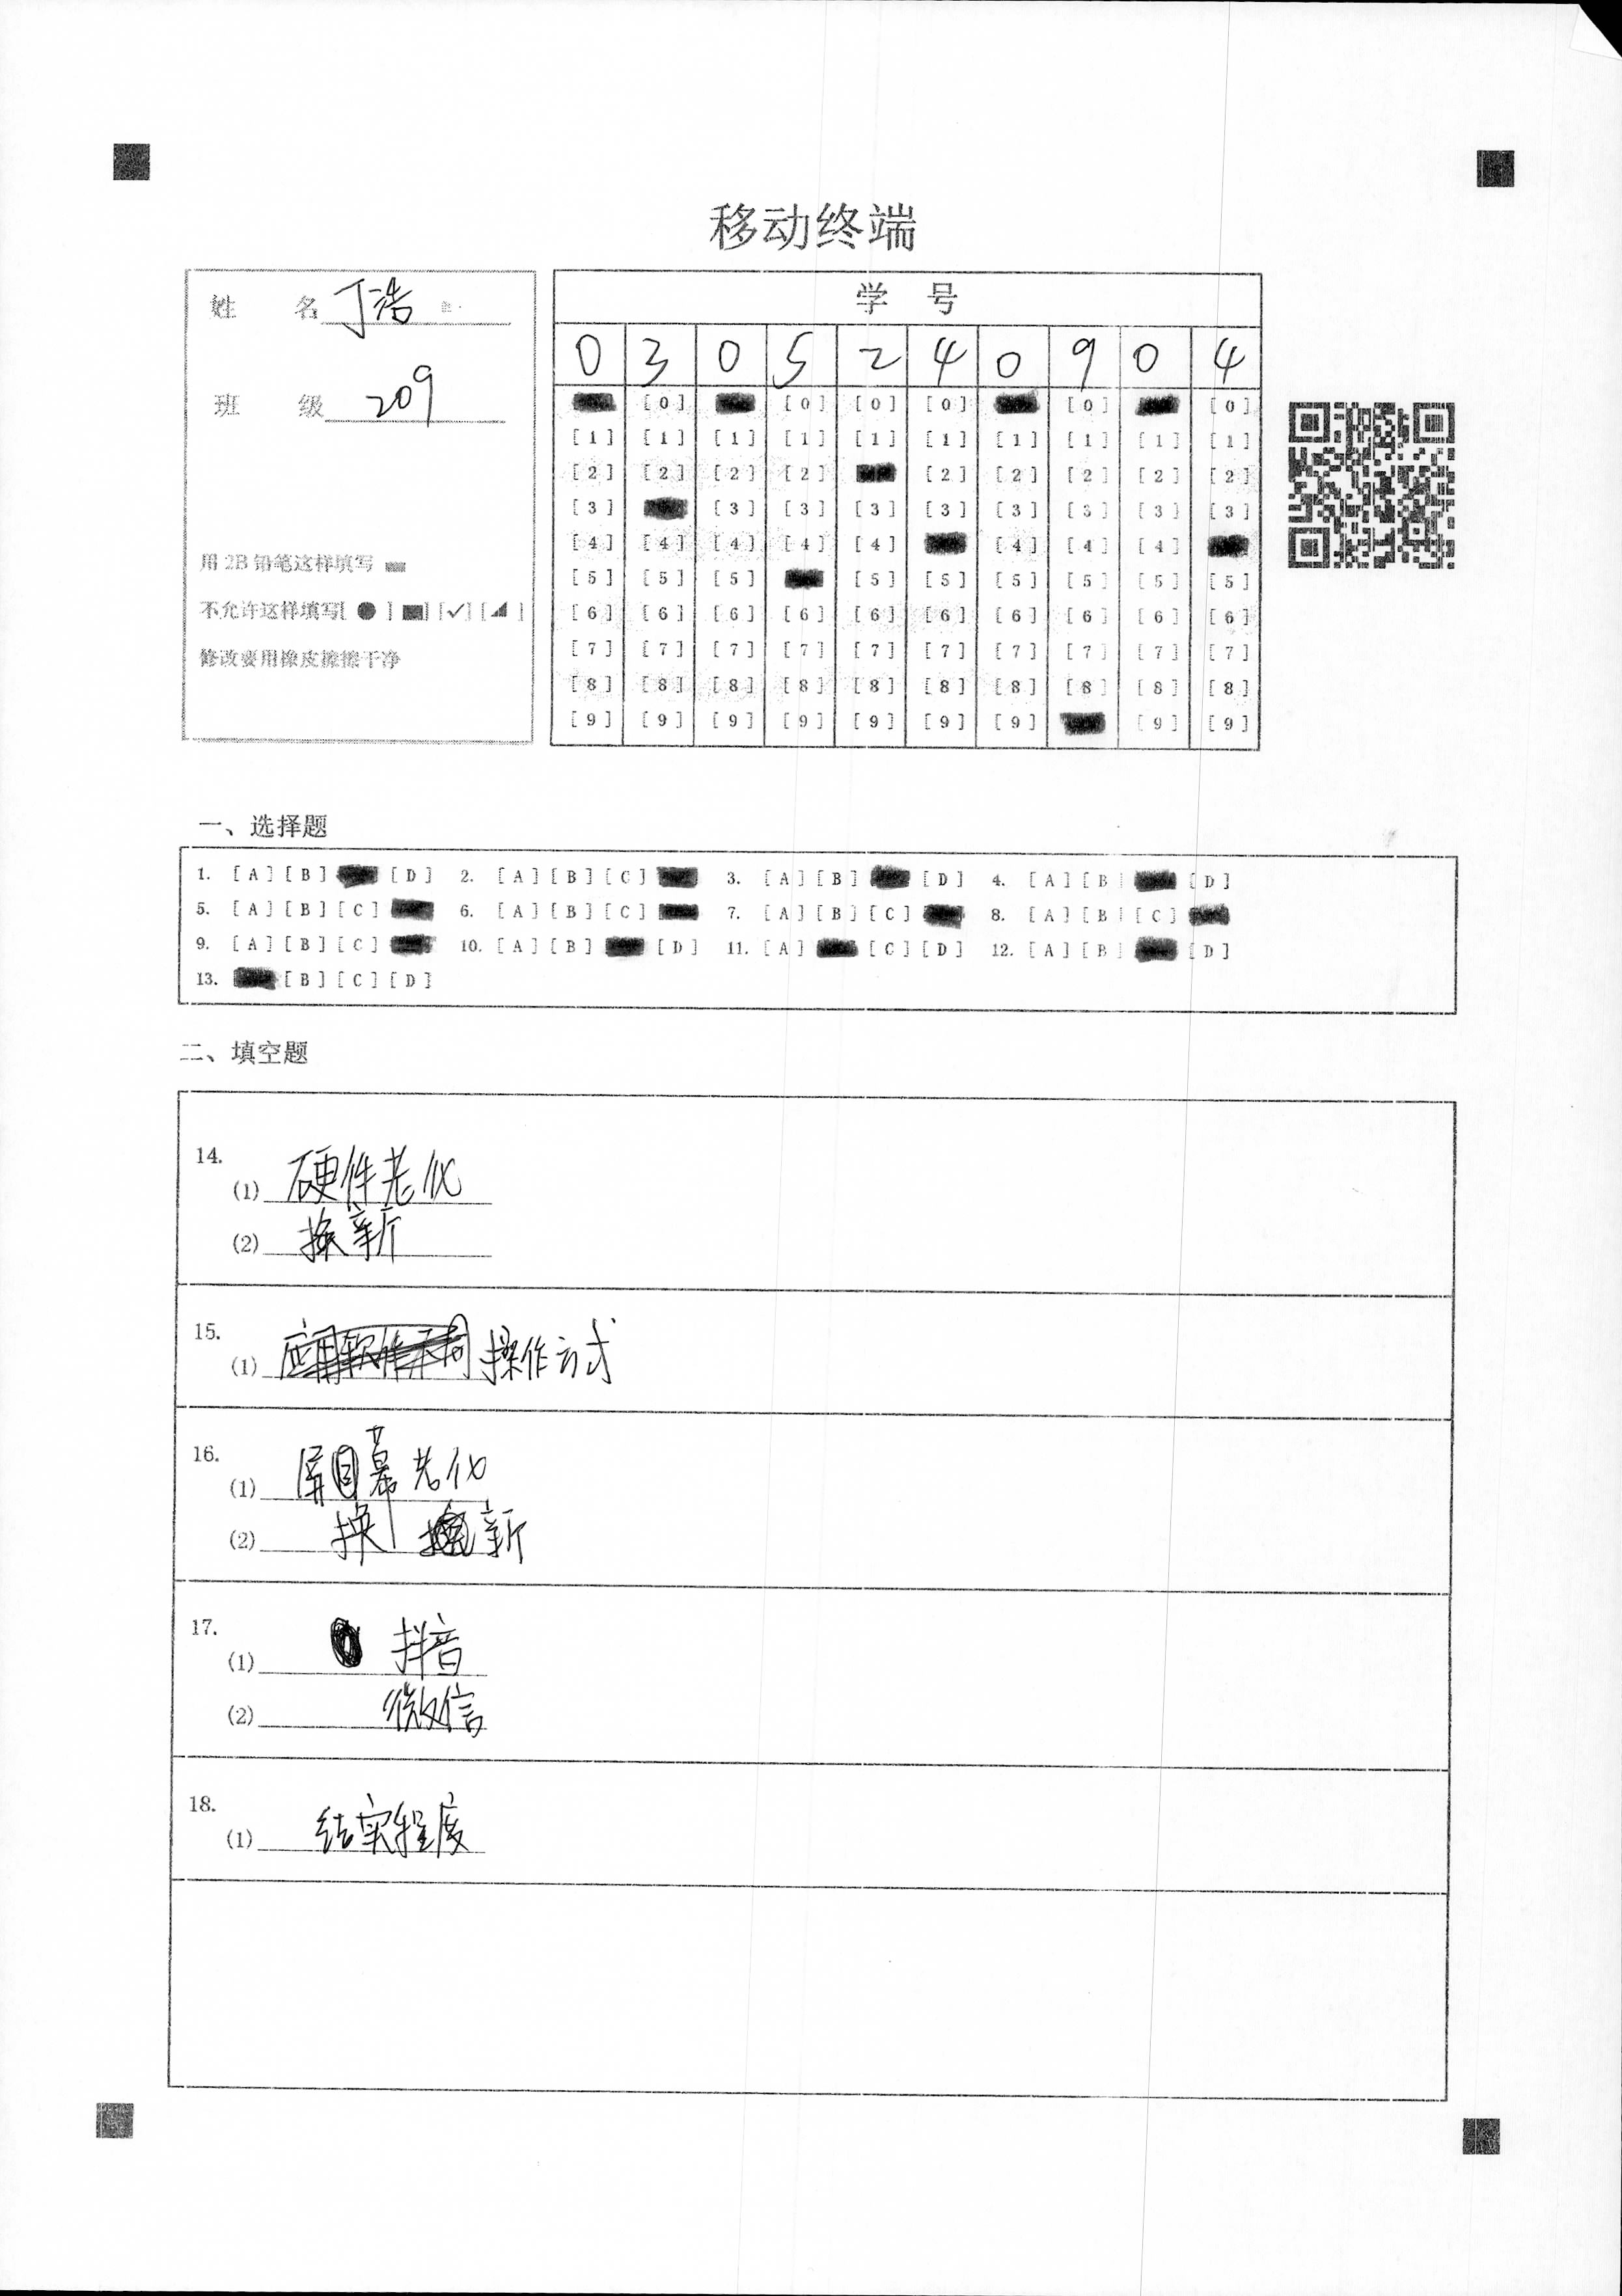 移动终端
姓 名 丁浩
班 级 209
用 2B 铅笔这样填写
不允许这样填写[ ● ] [■] [✓] [◢ ]
修改要用橡皮擦擦干净
学 号
0 3 0 5 2 4 0 9 0 4
[0] [0] [0] [0] [0] [0]
[1] [1] [1] [1] [1] [1] [1] [1] [1] [1]
[2] [2] [2] [2] [2] [2] [2] [2] [2]
[3] [3] [3] [3] [3] [3] [3] [3] [3]
[4] [4] [4] [4] [4] [4] [4] [4]
[5] [5] [5] [5] [5] [5] [5] [5] [5]
[6] [6] [6] [6] [6] [6] [6] [6] [6] [6]
[7] [7] [7] [7] [7] [7] [7] [7] [7] [7]
[8] [8] [8] [8] [8] [8] [8] [8] [8] [8]
[9] [9] [9] [9] [9] [9] [9] [9] [9]
一、选择题
1. [A] [B] [D] 2. [A] [B] [C] 3. [A] [B] [D] 4. [A] [B] [D]
5. [A] [B] [C] 6. [A] [B] [C] 7. [A] [B] [C] 8. [A] [B] [C]
9. [A] [B] [C] 10. [A] [B] [D] 11. [A] [C] [D] 12. [A] [B] [D]
13. [B] [C] [D]
二、填空题
14.
(1) 硬件老化
(2) 换新
15.
(1) 操作方式
16.
(1) 屏幕老化
(2) 换 新
17.
(1) 抖音
(2) 微信
18.
(1) 结实程度